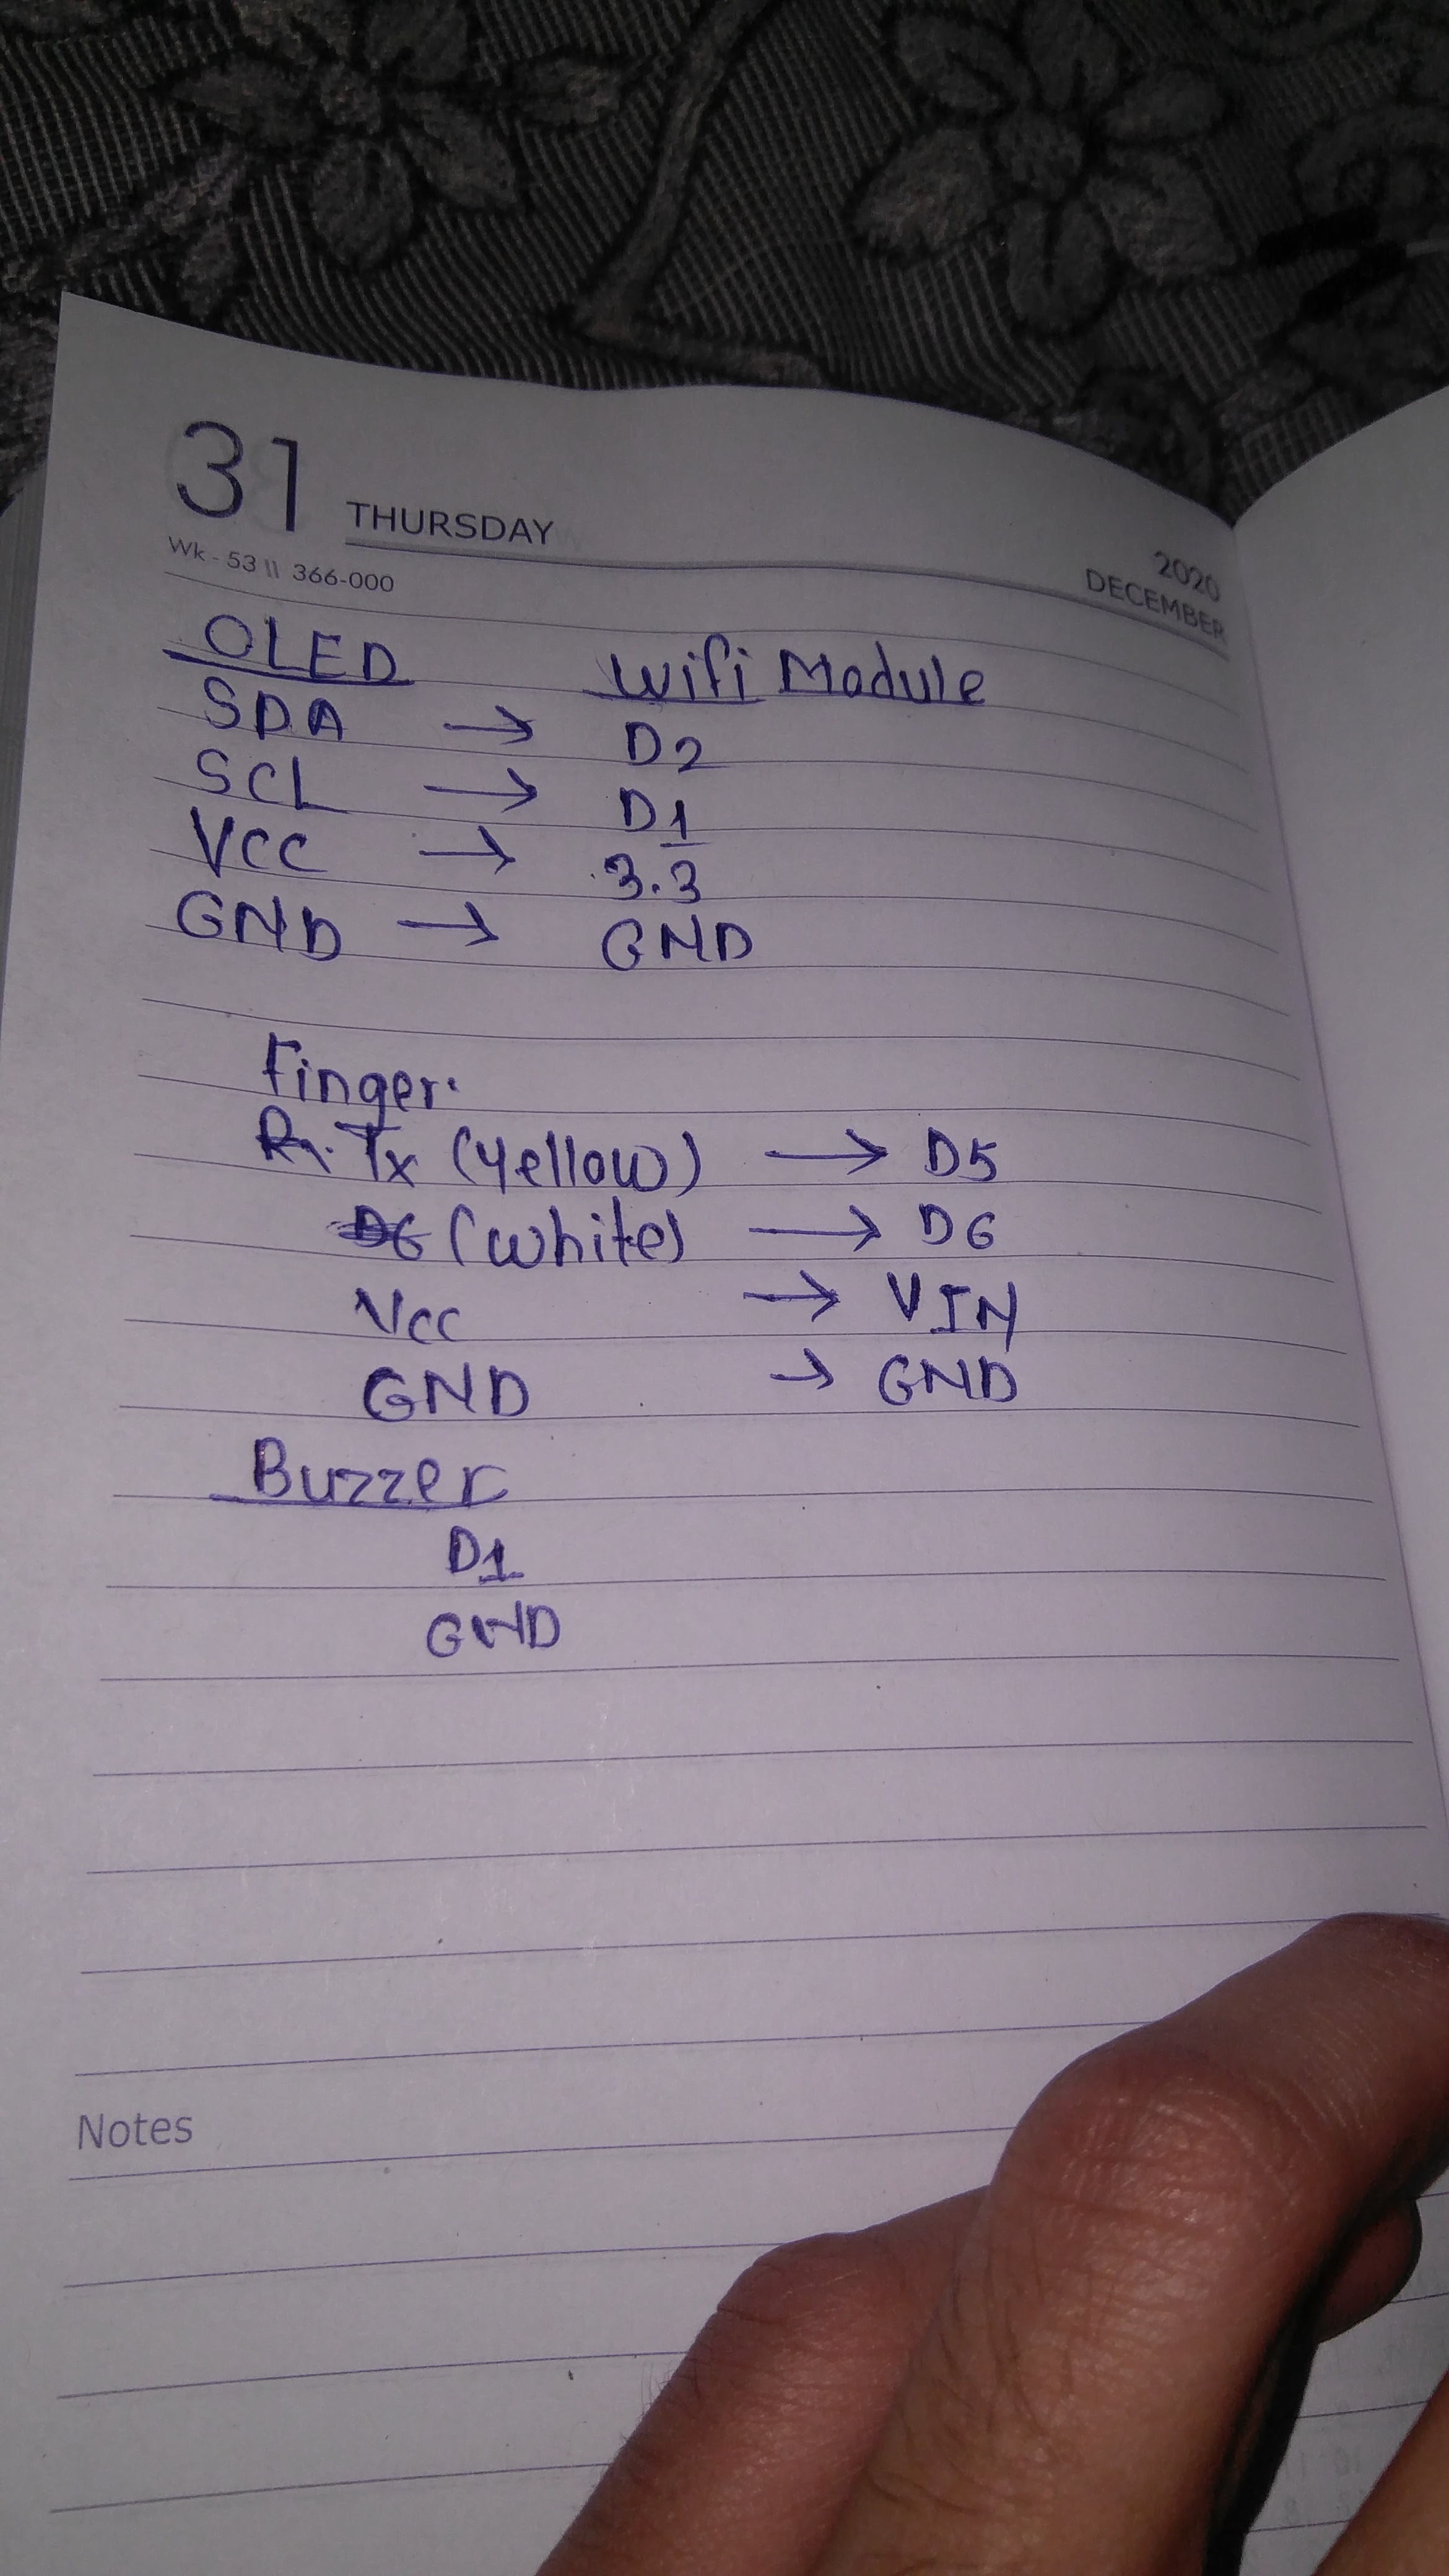 31 THURSDAY
2020
DECEMBER
Wk - 53 \\ 366-000
OLED Wifi Module
SDA → D2
SCL → D1
VCC → 3.3
GND → GND
Finger.
Tx (yellow) → D5
(white) → D6
Vcc → VIN
GND → GND
Buzzer
D1
GND
Notes